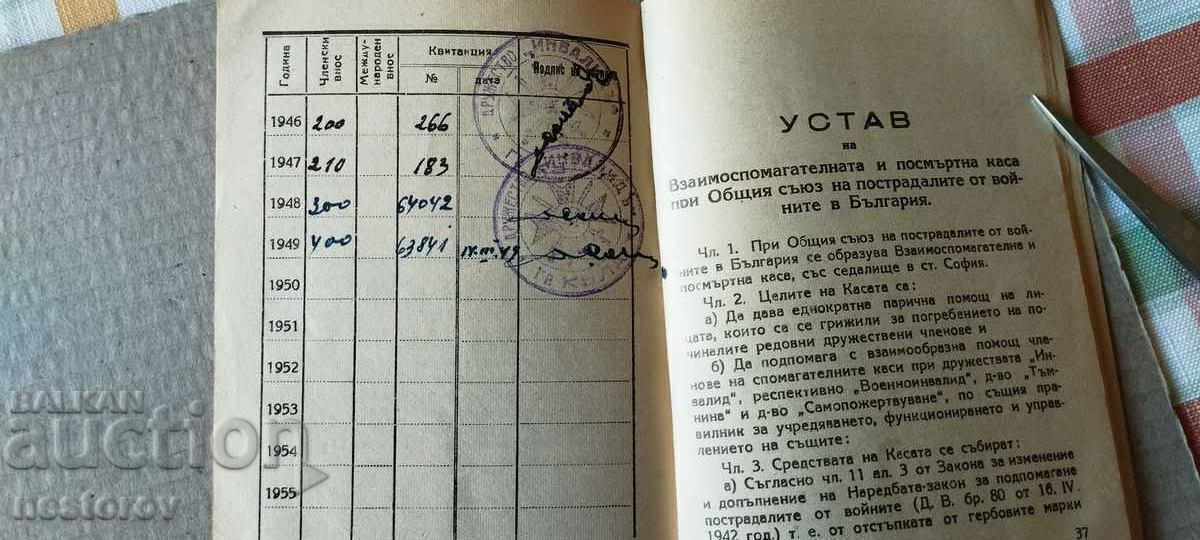 Година Членски внос Между-народен внос Квитанция Подпис на
№ дата
1946 200 266
1947 210 183
1948 300 64042
1949 400 63841 14.III.49
1950
1951
1952
1953
1954
1955
ДРУЖЕСТВО „ИНВАЛИД“
BALKAN
auction
nestorov
УСТАВ
на
Взаимоспомагателната и посмъртна каса
при Общия съюз на пострадалите от вой-
ните в България.
Чл. 1. При Общия съюз на пострадалите от вой-
ните в България се образува Взаимоспомагателна и
посмъртна каса, със седалище в ст. София.
Чл. 2. Целите на Касата са:
а) Да дава еднократна парична помощ на ли-
цата, които са се грижили за погребението на по-
чиналите редовни дружествени членове и
б) Да подпомага с взаимообразна помощ чле-
нове на спомагателните каси при дружествата „Ин-
валид“, респективно „Военноинвалид“, д-во „Тъм-
нина“ и д-во „Самопожертвуване“, по същия пра-
вилник за учредяването, функционирането и управ-
лението на същите:
Чл. 3. Средствата на Касата се събират:
а) Съгласно чл. 11 ал. 3 от Закона за изменение
и допълнение на Наредбата-закон за подпомагане
пострадалите от войните (Д. В. бр. 80 от 16. IV.
1942 год.) т. е. от отстъпката от гербовите марки
37